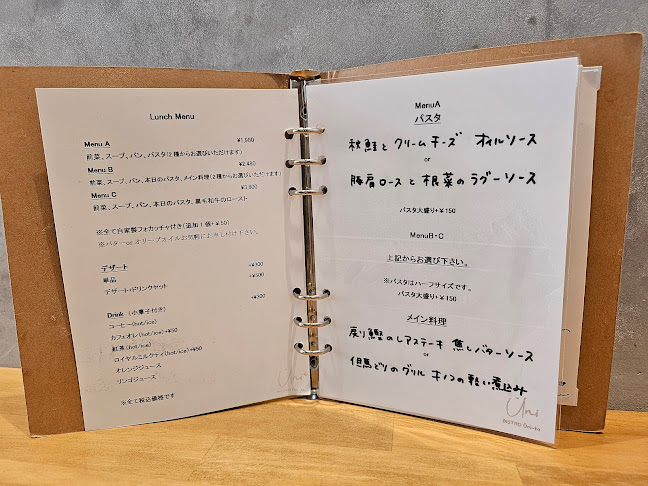 Lunch Menu
Menu A ¥1,980
前菜、スープ、パン、パスタ(2種からお選びいただけます)
Menu B ¥2,480
前菜、スープ、パン、本日のパスタ、メイン料理(2種からお選びいただけます)
Menu C
前菜、スープ、パン、本日のパスタ、黒毛和牛のロースト
※全て自家製フォカッチャ付き(追加1個+¥50)
※バターor オリーブオイルお気軽にお申し付け下さい。
デザート
単品 +¥300
デザート+ドリンクセット +¥500
Drink (小菓子付き) +¥300
コーヒー(hot/ice)
カフェオレ(hot/ice)+¥50
紅茶(hot/ice)
ロイヤルミルクティ(hot/ice)+¥50
オレンジジュース
リンゴジュース
※全て税込価格です
Uni
MenuA
パスタ
秋鮭とクリームチーズ オイルソース
or
豚肩ロースと根菜のラグーソース
パスタ大盛り+¥150
MenuB・C
上記からお選び下さい。
※パスタはハーフサイズです。
パスタ大盛り+¥150
メイン料理
戻り鰹のレアステーキ 焦しバターソース
or
但馬どりのグリル キノコの軽い煮込み
Uni